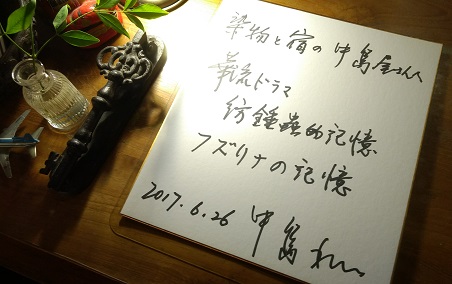 染物と宿の中島屋さんへ
華流ドラマ
紡錘蟲的記憶
フズリナの記憶
2017.6.26 中島